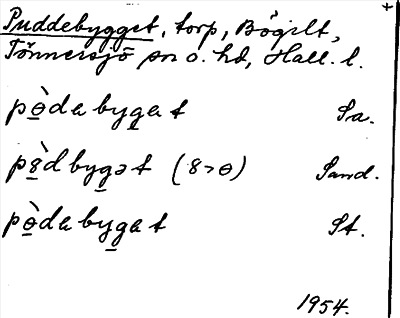 +
Puddebygget, torp, Bögilt,
Tönnersjö sn o. hd, Hall. l.
pɵ̀dabygat Sa.
p8̀dbygət (8>ɵ) Sand.
pɵ̀dabygat St.
1954.